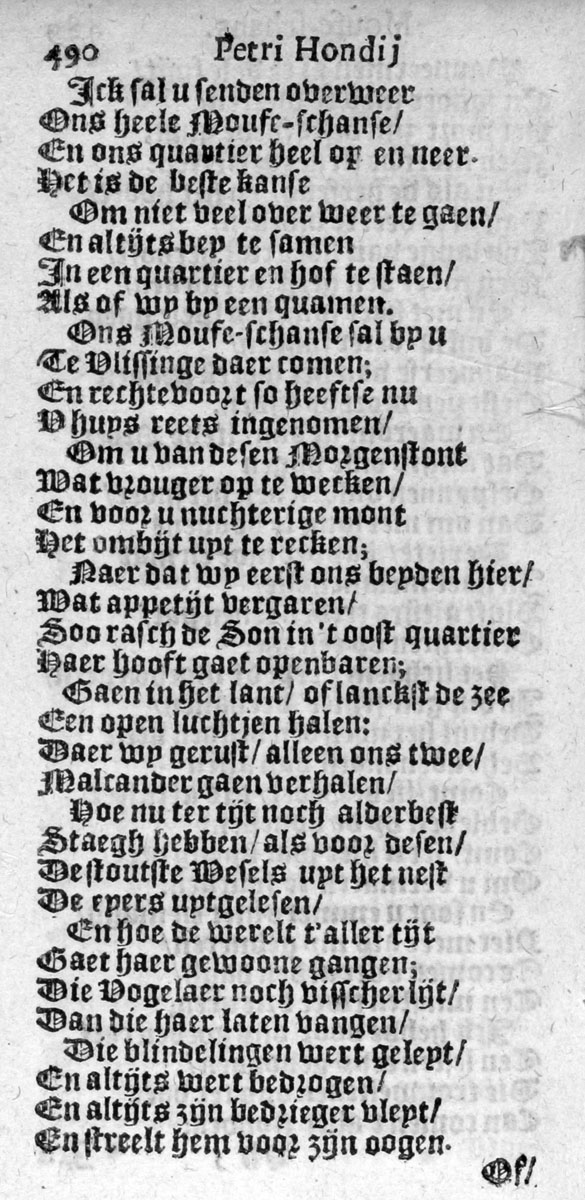 490 Petri Hondij
Ick sal u senden over weer
Ons heele Moufe-schanse/
En ons quartier heel op en neer.
Het is de beste kanse
Om niet veel over weer te gaen/
En altijts bey te samen
In een quartier en hof te staen/
Als of wy by een quamen.
Ons Moufe-schanse sal by u
Te Vlissinge daer comen;
En rechtevoort so heeftse nu
V huys reets ingenomen/
Om u van desen Morgenstont
Wat vrouger op te wecken/
En voor u nuchterige mont
Het ombijt uyt te recken;
Naer dat wy eerst ons beyden hier/
Wat appetijt vergaren/
Soo rasch de Son in 't oost quartier
Haer hooft gaet openbaren;
Gaen in het lant/ of lanckst de zee
Een open luchtjen halen:
Daer wy gerust/ alleen ons twee/
Malcander gaen verhalen/
Hoe nu ter tijt noch alderbest
Staegh hebben/ als voor desen/
De stoutste Wesels uyt het nest
De eyers uytgelesen/
En hoe de werelt t'aller tijt
Gaet haer gewoone gangen;
Die Vogelaer noch visscher lijt/
Dan die haer laten vangen/
Die blindelingen wert geleyt/
En altijts wert bedrogen/
En altijts zijn bedrieger vleyt/
En streelt hem voor zijn oogen.
Of/